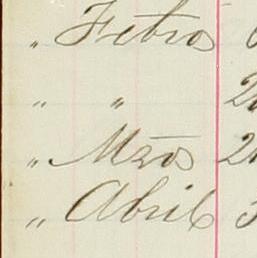 " Febro
" " 2
" Mzo 2
" Abril